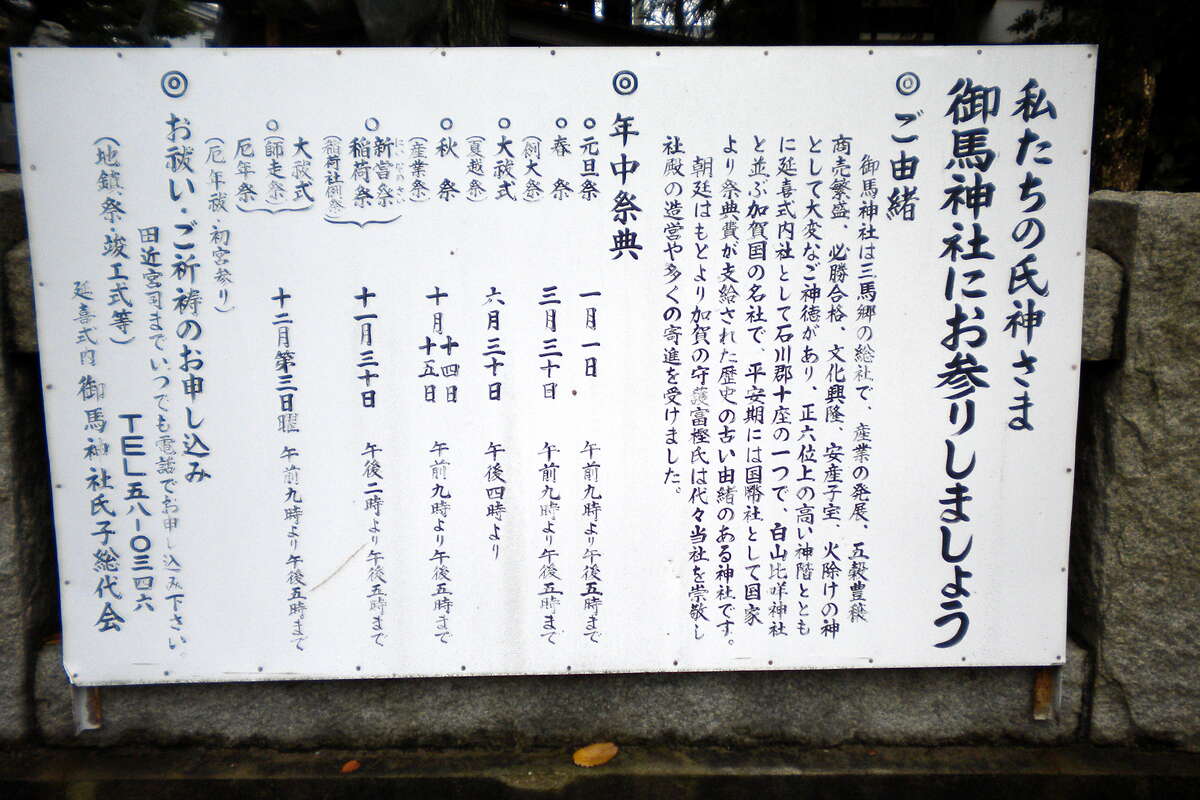 私たちの氏神さま
御馬神社にお参りしましょう
◎ご由緒
御馬神社は三馬郷の総社で、産業の発展、五穀豊穣
商売繁盛、必勝合格、文化興隆、安産子宝、火除けの神
として大変なご神徳があり、正六位上の高い神階ととも
に延喜式内社として石川郡十座の一つで、白山比咩神社
と並ぶ加賀国の名社で、平安期には国幣社として国家
より祭典費が支給された歴史の古い由緒のある神社です。
朝廷はもとより加賀の守護富樫氏は代々当社を崇敬し
社殿の造営や多くの寄進を受けました。
◎年中祭典
○元旦祭 一月一日 午前九時より午後五時まで
○春祭 三月三十日 午前九時より午後五時まで
(例大祭)
○大祓式 六月三十日 午後四時より
(夏越祭)
○秋祭 十月十四日十五日 午前九時より午後五時まで
(産業祭)
○新嘗祭 にいなめさい
稲荷祭 十一月三十日 午後二時より午後五時まで
(稲荷社例祭)
大祓式
○(師走祭) 十二月第三日曜 午前九時より午後五時まで
厄年祭
(厄年祓・初宮参り)
◎お祓い・ご祈祷のお申し込み
田近宮司までいつでも電話でお申し込み下さい。
TEL五八-〇三四六
(地鎮祭・竣工式等)
延喜式内 御馬神社氏子総代会